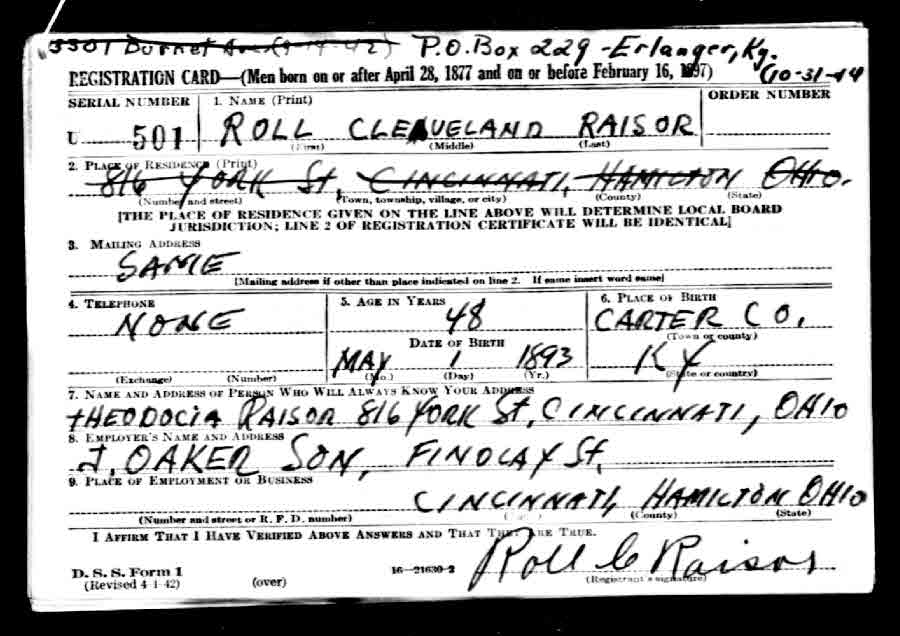 3301 Burnet Ave (9-19-42) P.O. Box 229 - Erlanger, Ky.
REGISTRATION CARD—(Men born on or after April 28, 1877 and on or before February 16, 1897) (10-31-44
SERIAL NUMBER 1. NAME (Print) ORDER NUMBER
U 501 ROLL CLEAVELAND RAISOR
(First) (Middle) (Last)
2. PLACE OF RESIDENCE (Print)
816 YORK St, CINCINNATI, HAMILTON OHIO.
(Number and street) (Town, township, village, or city) (County) (State)
[THE PLACE OF RESIDENCE GIVEN ON THE LINE ABOVE WILL DETERMINE LOCAL BOARD
JURISDICTION; LINE 2 OF REGISTRATION CERTIFICATE WILL BE IDENTICAL]
3. MAILING ADDRESS
SAME
[Mailing address if other than place indicated on line 2. If same insert word same]
4. TELEPHONE 5. AGE IN YEARS 6. PLACE OF BIRTH
NONE 48 CARTER CO,
(Town or county)
DATE OF BIRTH
MAY 1 1893 KY
(Exchange) (Number) (Mo.) (Day) (Yr.) (State or country)
7. NAME AND ADDRESS OF PERSON WHO WILL ALWAYS KNOW YOUR ADDRESS
tHEODOCIA RAISOR 816 YORK St, CINCINNATI, OHIO
8. EMPLOYER'S NAME AND ADDRESS
J. OAKER SON, FINDLAY St.
9. PLACE OF EMPLOYMENT OR BUSINESS
CINCINNATI, HAMILTON OHIO
(Number and street or R. F. D. number) (County) (State)
I AFFIRM THAT I HAVE VERIFIED ABOVE ANSWERS AND THAT THEY ARE TRUE.
Roll C Raisor
D. S. S. Form 1
(Revised 4-1-42) (over) 16—21630-2 (Registrant's signature)